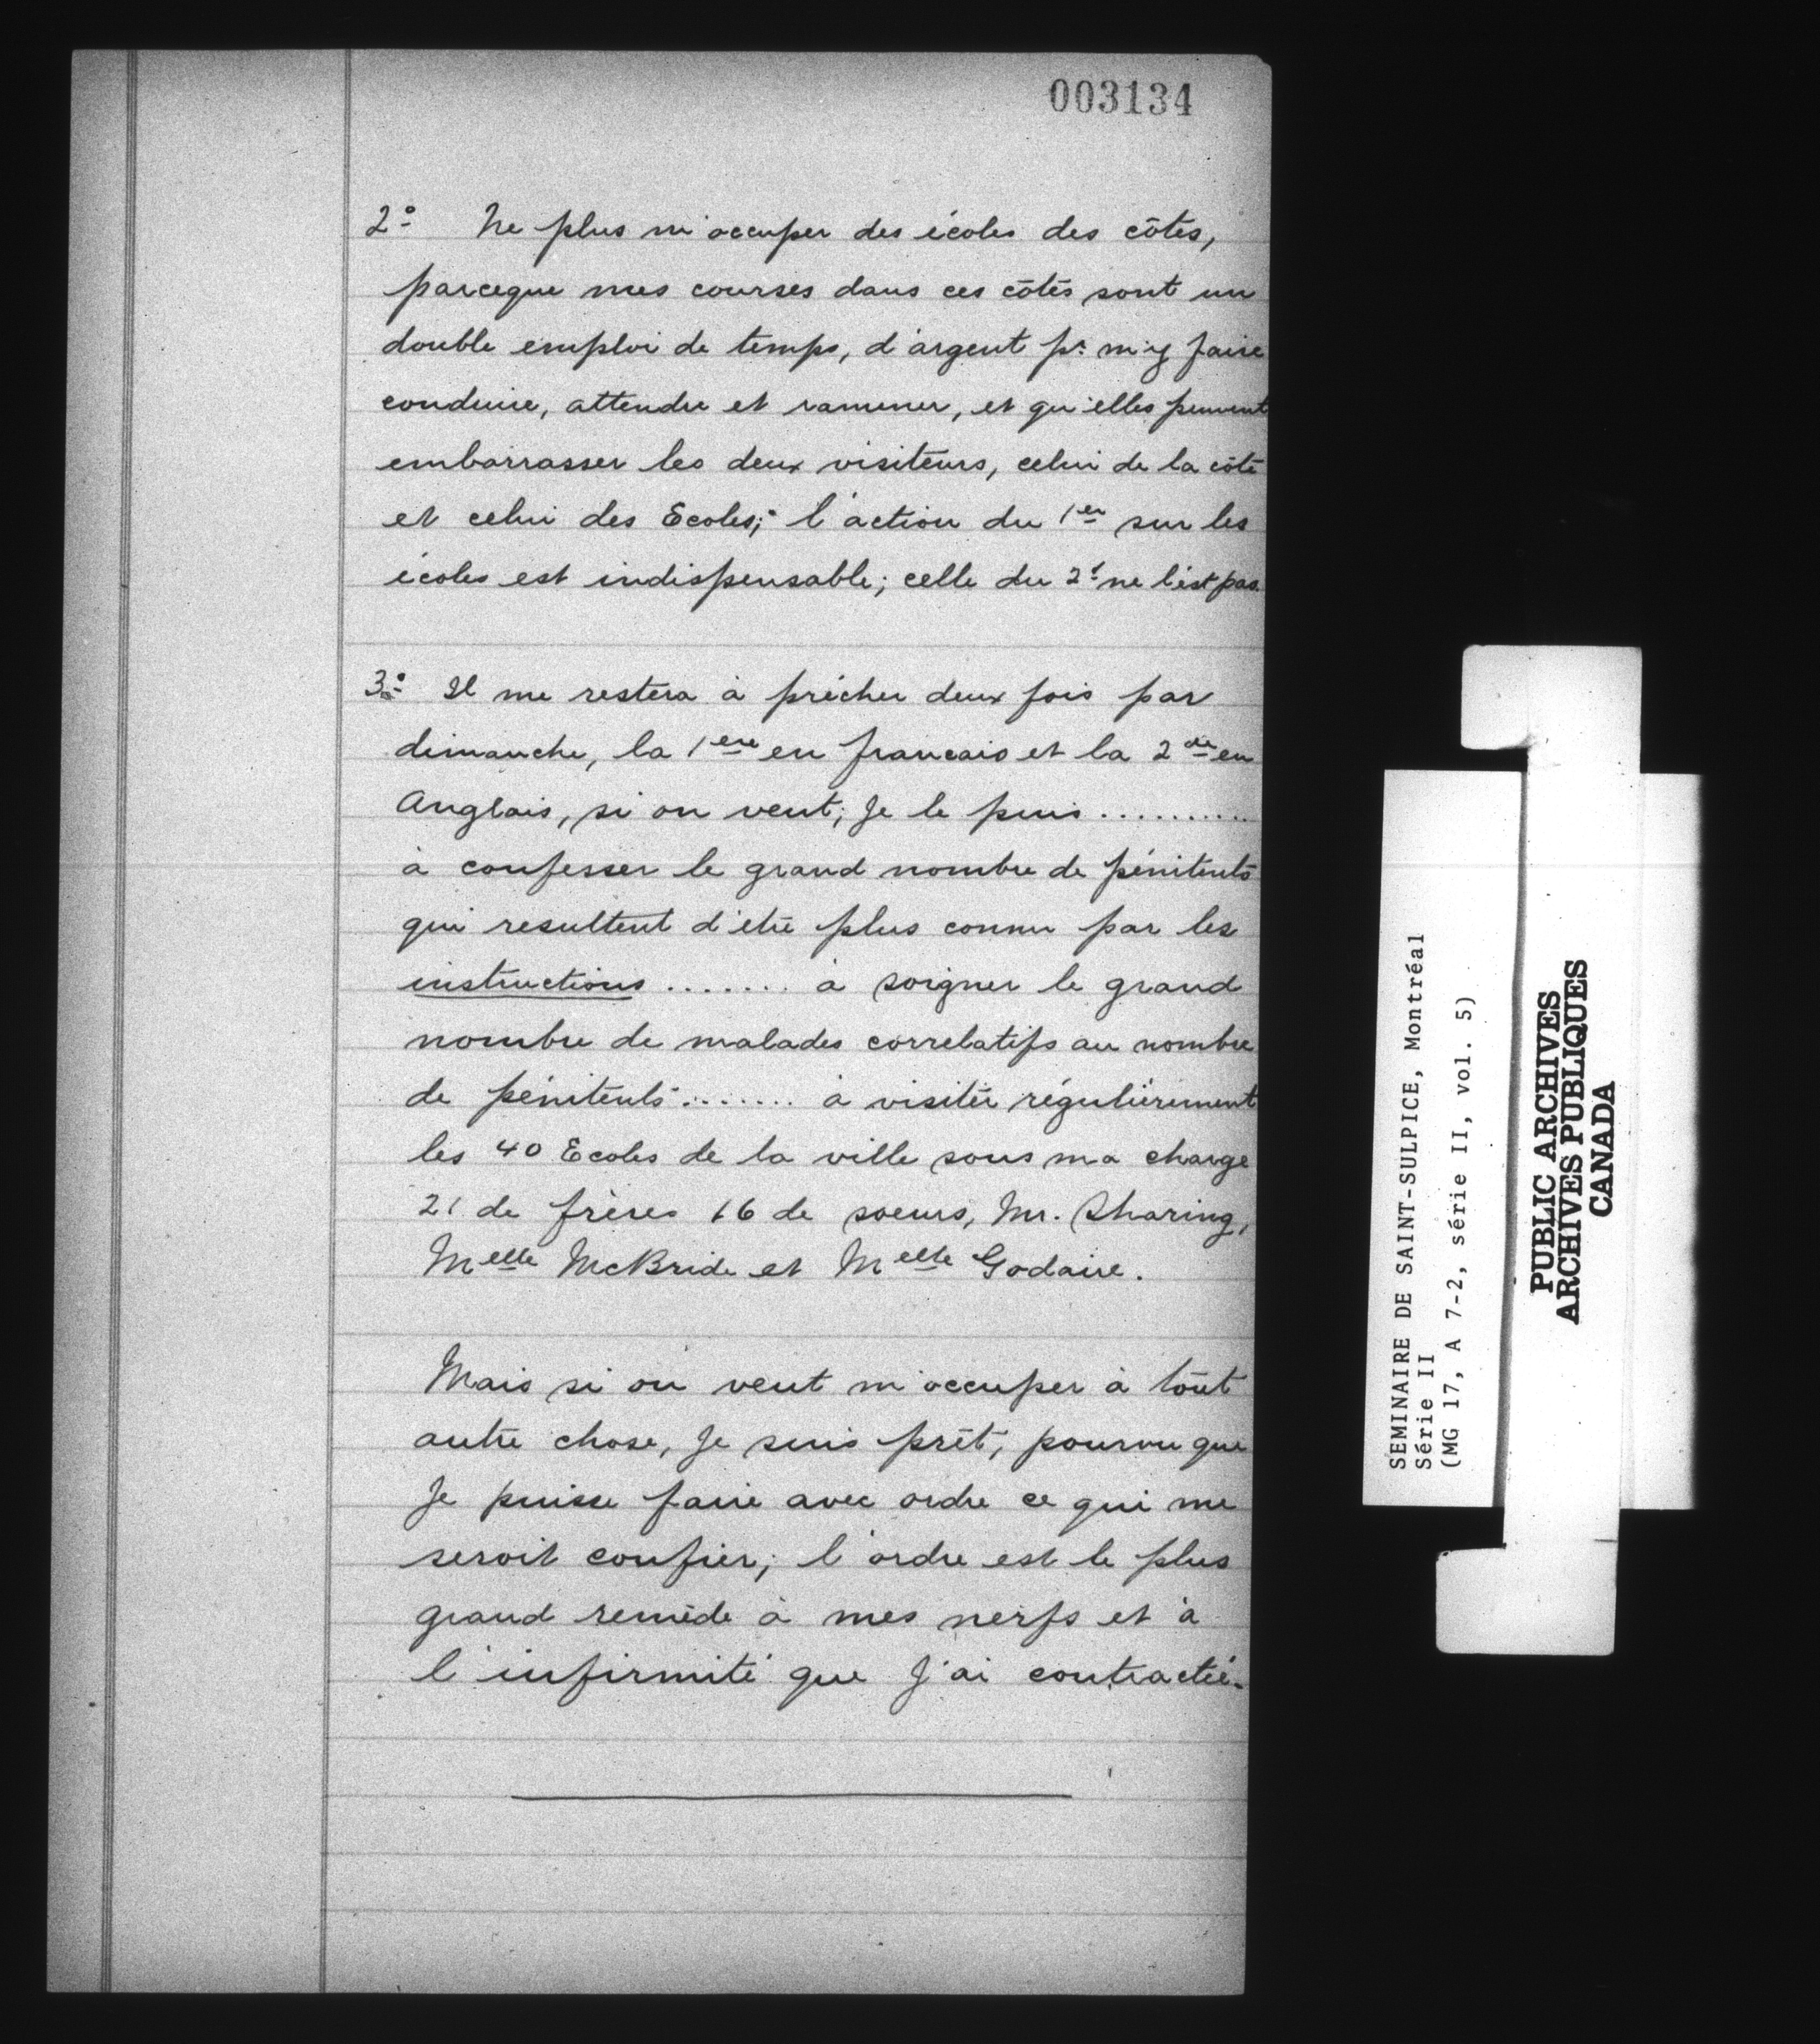 003134
2º Ne plus m'occuper des écoles des côtes,
parceque mes courses dans ces côtés sont un
double emploi de temps, d'argent pr. m'y faire
conduire, attendre et ramener, et qu'elles peuvent
embarrasser les deux visiteurs, celui de la côté
et celui des Ecoles; l'action du 1er sur les
écoles est indispensable; celle du 2d ne l'est pas.
3º Il me restera à prêcher deux fois par
dimanche, la 1ere en francais et la 2de en
Anglais, si on veut; Je le puis ..........
à confesser le grand nombre de pénitents
qui resultent d'etre plus connu par les
instructions ....... à soigner le grand
nombre de malades correlatifs au nombre
de pénitents ....... à visiter régulièrement
les 40 Ecoles de la ville sous ma charge
21 de frères 16 de soeurs, Mr. Sharing,
Melle McBride et Melle Godaire.
Mais si on veut m'occuper à tout
autre chose, Je suis prêt, pourvu que
Je puisse faire avec ordre ce qui me
seroit confier; l'ordre est le plus
grand remède à mes nerfs et à
l'infirmité que J'ai contractée.
SEMINAIRE DE SAINT-SULPICE, Montréal
Série II
(MG 17, A 7-2, série II, vol. 5)
PUBLIC ARCHIVES
ARCHIVES PUBLIQUES
CANADA